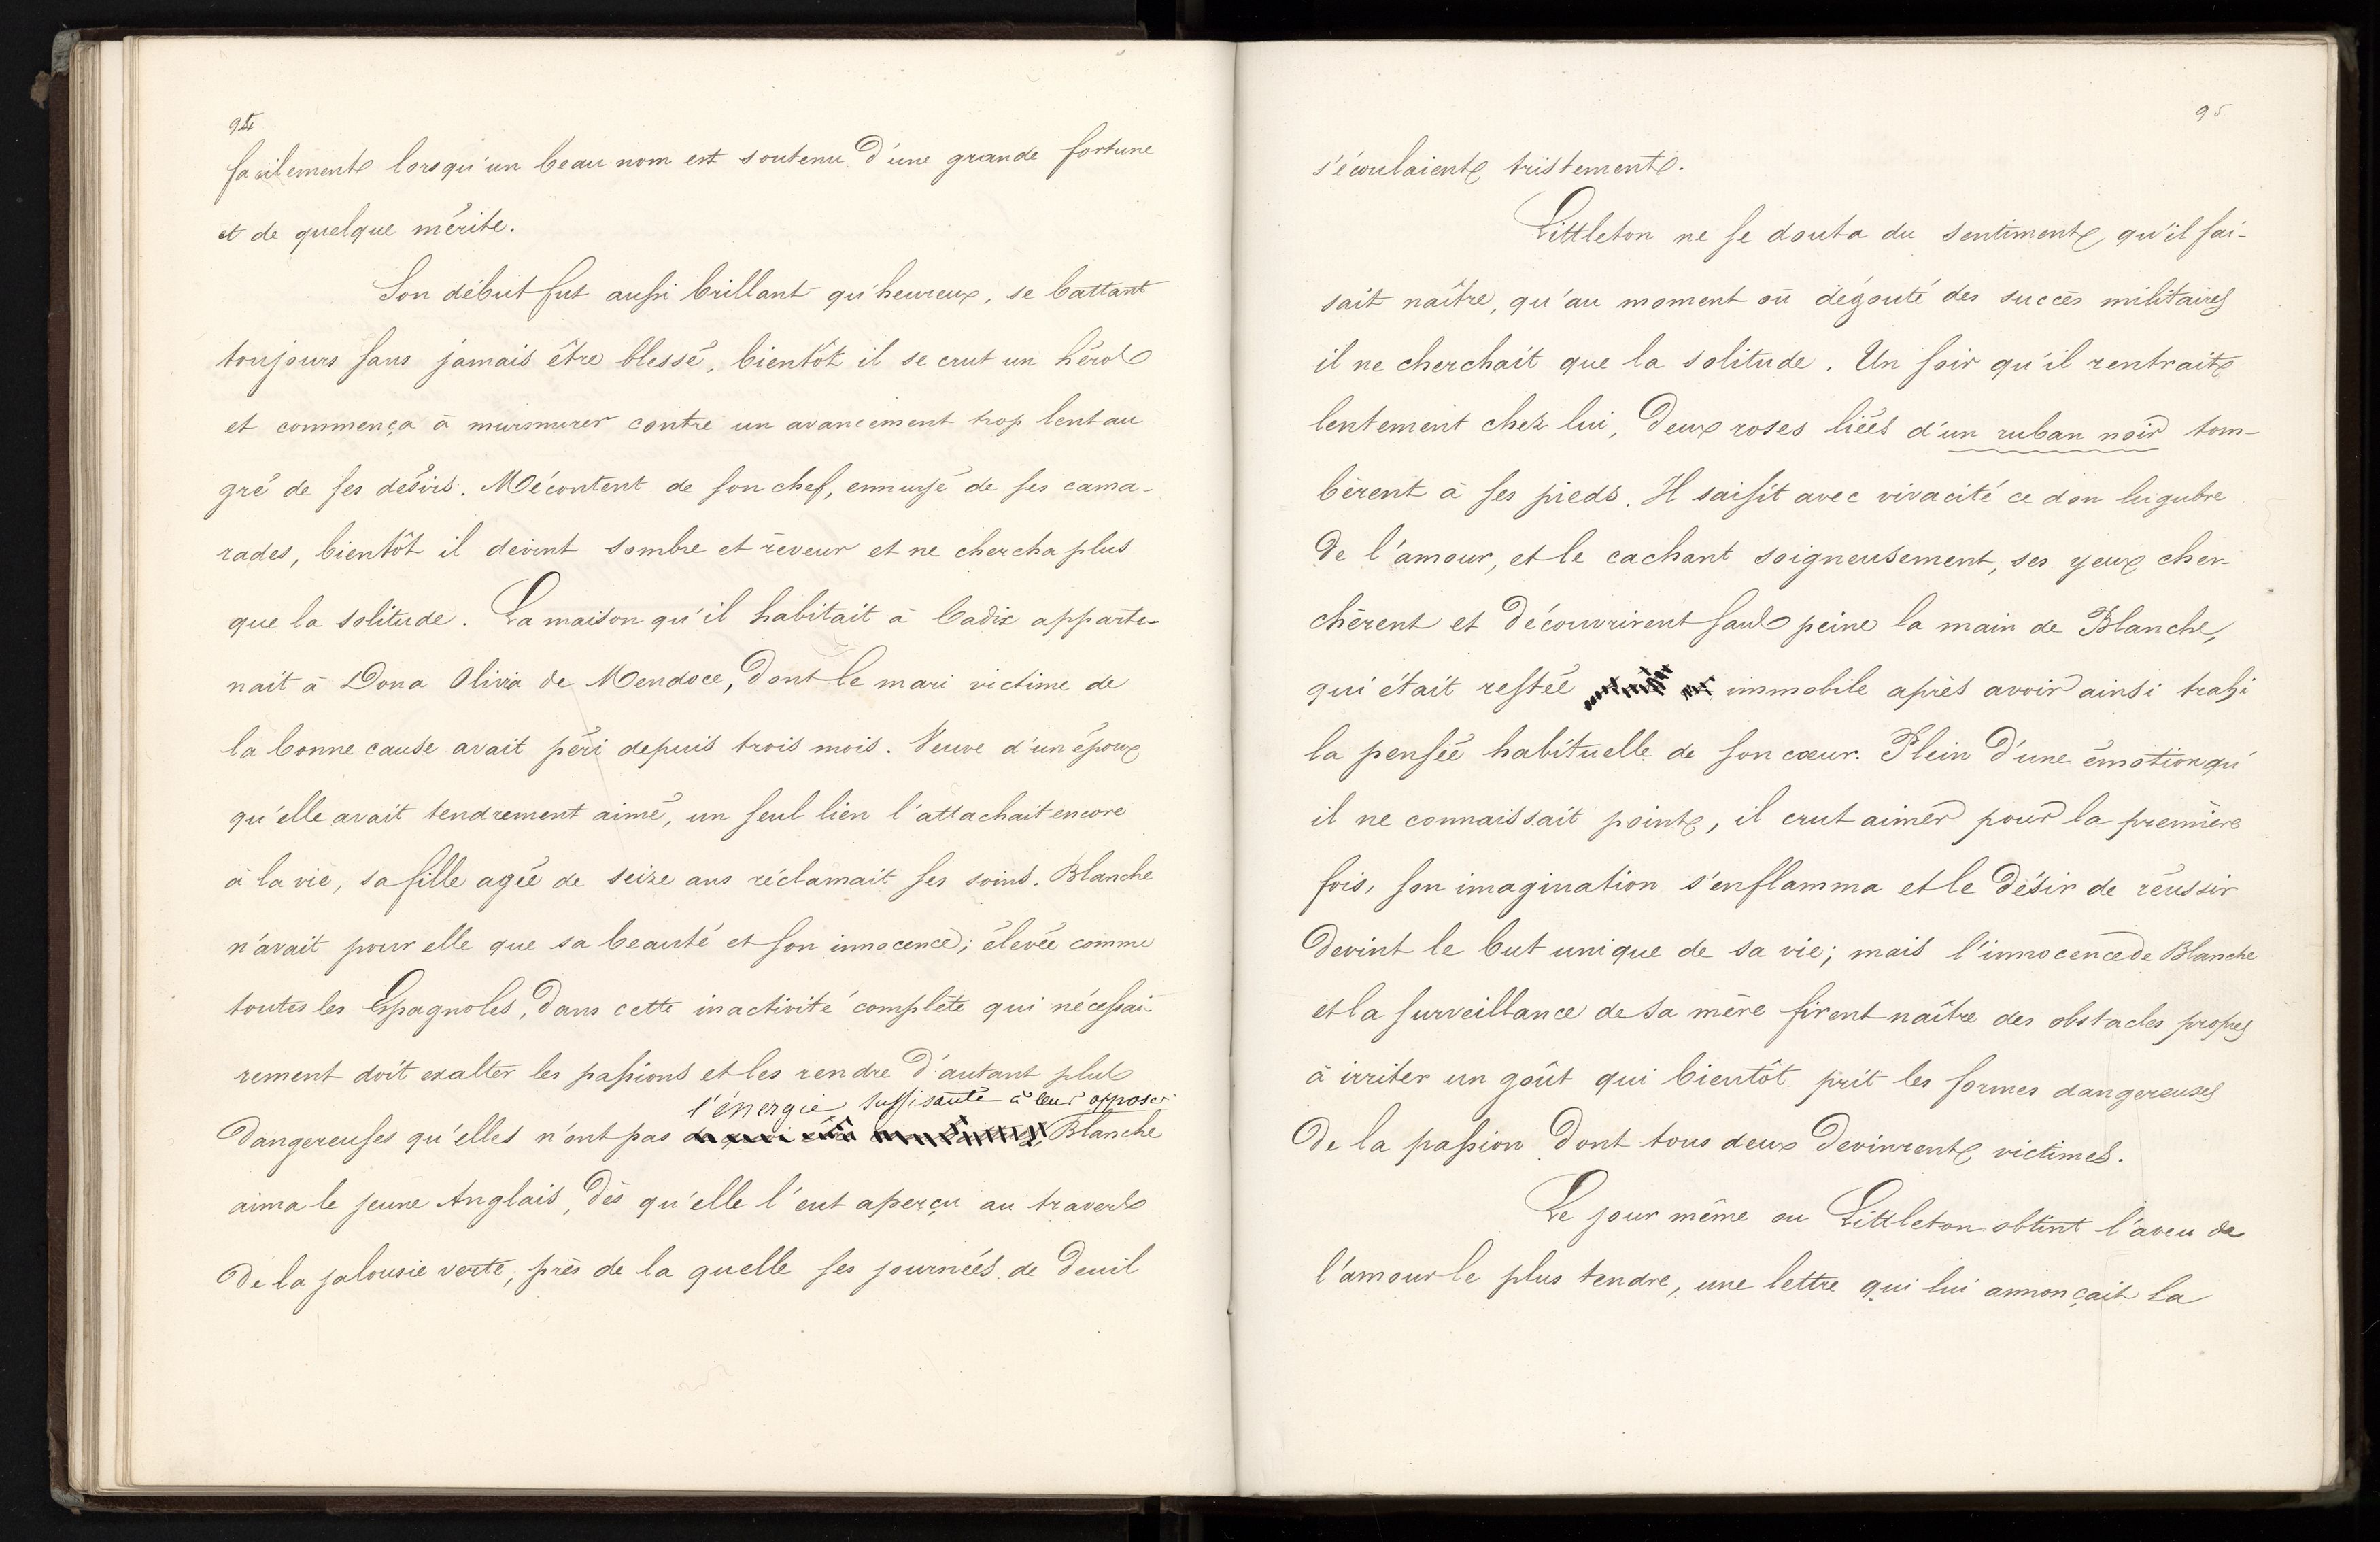 94
facilement lorsqu'un beau nom est soutenu d'une grande fortune
et de quelque mérite.
Son début fut aussi brillant qu'heureux, se battant
toujours sans jamais être blessé, bientôt il se crut un héros
et commença à murmurer contre un avancement trop lent au
gré de ses désirs. Mécontent de son chef, ennuyé de ses cama-
rades, bientôt il devint sombre et rêveur et ne chercha plus
que la solitude. La maison qu'il habitait à Cadix apparte-
nait à Dona Olivia de Mendoce, dont le mari victime de
la bonne cause avait péri depuis trois mois. Veuve d'un époux
qu'elle avait tendrement aimé, un seul lien l'attachait encore
à la vie, sa fille agée de seize ans réclamait ses soins. Blanche
n'avait pour elle que sa beauté et son innocence; élevée comme
toutes les Espagnoles, dans cette inactivité complète qui nécessai-
rement doit exalter les passions et les rendre d'autant plus
l'énergie suffisante à leur opposer
dangereuses qu'elles n'ont pas Blanche
aima le jeune Anglais, dès qu'elle l'eut aperçu au travers
de la jalousie verte, près de la quelle ses journées de deuil
95
s'écoulaient tristement.
Littleton ne se douta du sentiment qu'il fai-
sait naître, qu'au moment où dégouté des succès militaires
il ne cherchait que la solitude. Un soir qu'il rentrait
lentement chez lui, deux roses liées d'un ruban noir tom-
bèrent à ses pieds. Il saisit avec vivacité ce don lugubre
de l'amour, et le cachant soigneusement, ses yeux cher-
chèrent et découvrirent sans peine la main de Blanche,
qui était restée immobile après avoir ainsi trahi
la pensée habituelle de son cœur. Plein d'une émotion qu'
il ne connaissait point, il crut aimer pour la première
fois, son imagination s'enflamma et le désir de réussir
devint le but unique de sa vie; mais l'innocence de Blanche
et la surveillance de sa mère firent naître des obstacles propres
à irriter un goût qui bientôt prit les formes dangereuses
de la passion dont tous deux devinrent victimes.
Le jour même ou Littleton obtint l'aveu de
l'amour le plus tendre, une lettre qui lui annonçait la